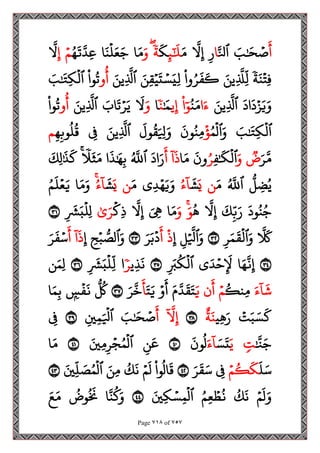 أَصْحَٰبَ ٱلنَّارِ إِلَّا مَلَٰٓئِكَةً ۙ وَمَا جَعَلْنَا عِدَّتَهُمْ إِلَّا
فِتْنَةً لِّلَّذِينَ كَفَرُوا۟ لِيَسْتَيْقِنَ ٱلَّذِينَ أُوتُوا۟ ٱلْكِتَٰبَ
وَيَزْدَادَ ٱلَّذِينَ ءَامَنُوٓا۟ إِيمَٰنًا ۙ وَلَا يَرْتَابَ ٱلَّذِينَ أُوتُوا۟
ٱلْكِتَٰبَ وَٱلْمُؤْمِنُونَ ۙ وَلِيَقُولَ ٱلَّذِينَ فِى قُلُوبِهِم
مَّرَضٌ وَٱلْكَٰفِرُونَ مَاذَآ أَرَادَ ٱللَّهُ بِهَٰذَا مَثَلًا ۚ كَذَٰلِكَ
يُضِلُّ ٱللَّهُ مَن يَشَآءُ وَيَهْدِى مَن يَشَآءُ ۚ وَمَا يَعْلَمُ
جُنُودَ رَبِّكَ إِلَّا هُوَ ۚ وَمَا هِىَ إِلَّا ذِكْرَىٰ لِلْبَشَرِ ٣١
كَلَّا وَٱلْقَمَرِ ٣٢ وَٱلَّيْلِ إِذْ أَدْبَرَ ٣٣ وَٱلصُّبْحِ إِذَآ أَسْفَرَ
٣٤ إِنَّهَا لَإِحْدَى ٱلْكُبَرِ ٣٥ نَذِيرًا لِّلْبَشَرِ ٣٦ لِمَن
شَآءَ مِنكُمْ أَن يَتَقَدَّمَ أَوْ يَتَأَخَّرَ ٣٧ كُلُّ نَفْسٍۭ بِمَا
كَسَبَتْ رَهِينَةٌ ٣٨ إِلَّآ أَصْحَٰبَ ٱلْيَمِينِ ٣٩ فِى
جَنَّٰتٍ يَتَسَآءَلُونَ ٤٠ عَنِ ٱلْمُجْرِمِينَ ٤١ مَا
سَلَكَكُمْ فِى سَقَرَ ٤٢ قَالُوا۟ لَمْ نَكُ مِنَ ٱلْمُصَلِّينَ ٤٣
وَلَمْ نَكُ نُطْعِمُ ٱلْمِسْكِينَ ٤٤ وَكُنَّا نَخُوضُ مَعَ
Page ٧١٨ of ٧٥٧